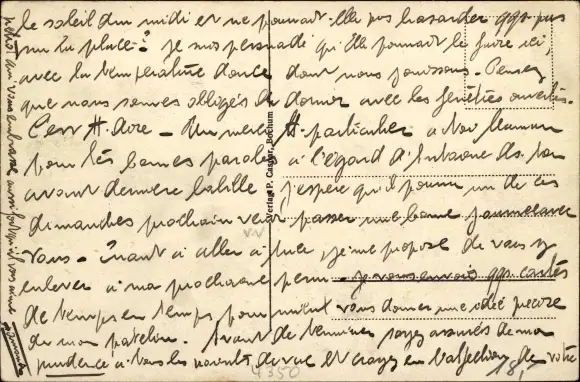 le soleil du midi et ne pourrait-elle pas hasarder qqs pas
sur la place? je suis persuadé qu'elle pourrait le faire ici,
avec la température douce dont nous jouissons. Pensez
que nous sommes obligés de dormir avec les fenêtres ouvertes.
C'est tt dire - Un merci tt particulier à Maman
pour les bonnes paroles à l'égard d' ds son
avant dernière babille j'espère qu'il pourra un de ces
dimanches prochain venir passer une bonne journée avec
vous - Quant à aller à je me propose de vous y
enlever à ma prochaine perm - je vous envoie qqs cartes
de temps en temps pour vous donner une idée précise
de mon patelin. Avant de terminer soyez assurés de ma
prudence à tous les points de vue et croyez en l'affection de votre
qui vous embrasse aussi fort qu'il vous aime
Verlag P. Caspar, Bochum
4350
18,-